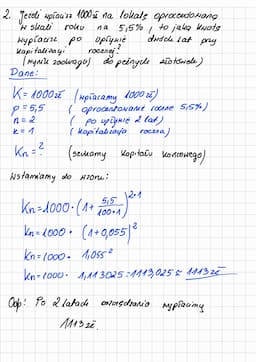 2. Jeżeli wpłacisz 1000 zł na lokatę oprocentowaną
w skali roku na 5,5%, to jaką kwotę
wypłacisz po upływie dwóch lat przy
kapitalizacji rocznej?
(wynik zaokrąglij do pełnych złotówek)
Dane:
K = 1000 zł (wpłacamy 1000 zł)
p = 5,5 (oprocentowanie roczne 5,5%)
n = 2 (po upływie 2 lat)
k = 1 (kapitalizacja roczna)
Kn = ? (szukamy kapitału końcowego)
Wstawiamy do wzoru:
Kn = 1000 · (1 + 5,5/100·1)^2·1
Kn = 1000 · (1 + 0,055)²
Kn = 1000 · 1,055²
Kn = 1000 · 1,113025 = 1113,025 ≈ 1113 zł
Odp: Po 2 latach oszczędzania wypłacimy
1113 zł.